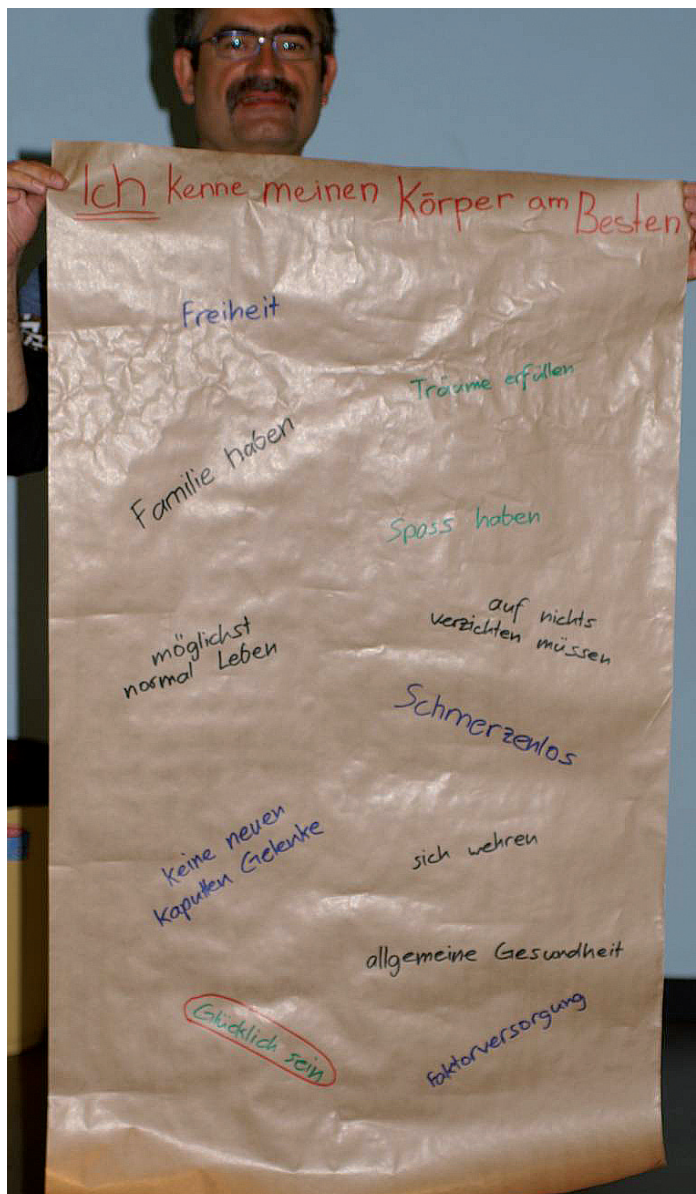 Ich kenne meinen Körper am Besten
Freiheit
Träume erfüllen
Familie haben
Spass haben
möglichst
normal Leben
auf nichts
verzichten müssen
Schmerzenlos
keine neuen
kaputten Gelenke
sich wehren
allgemeine Gesundheit
Glücklich sein
Faktorversorgung